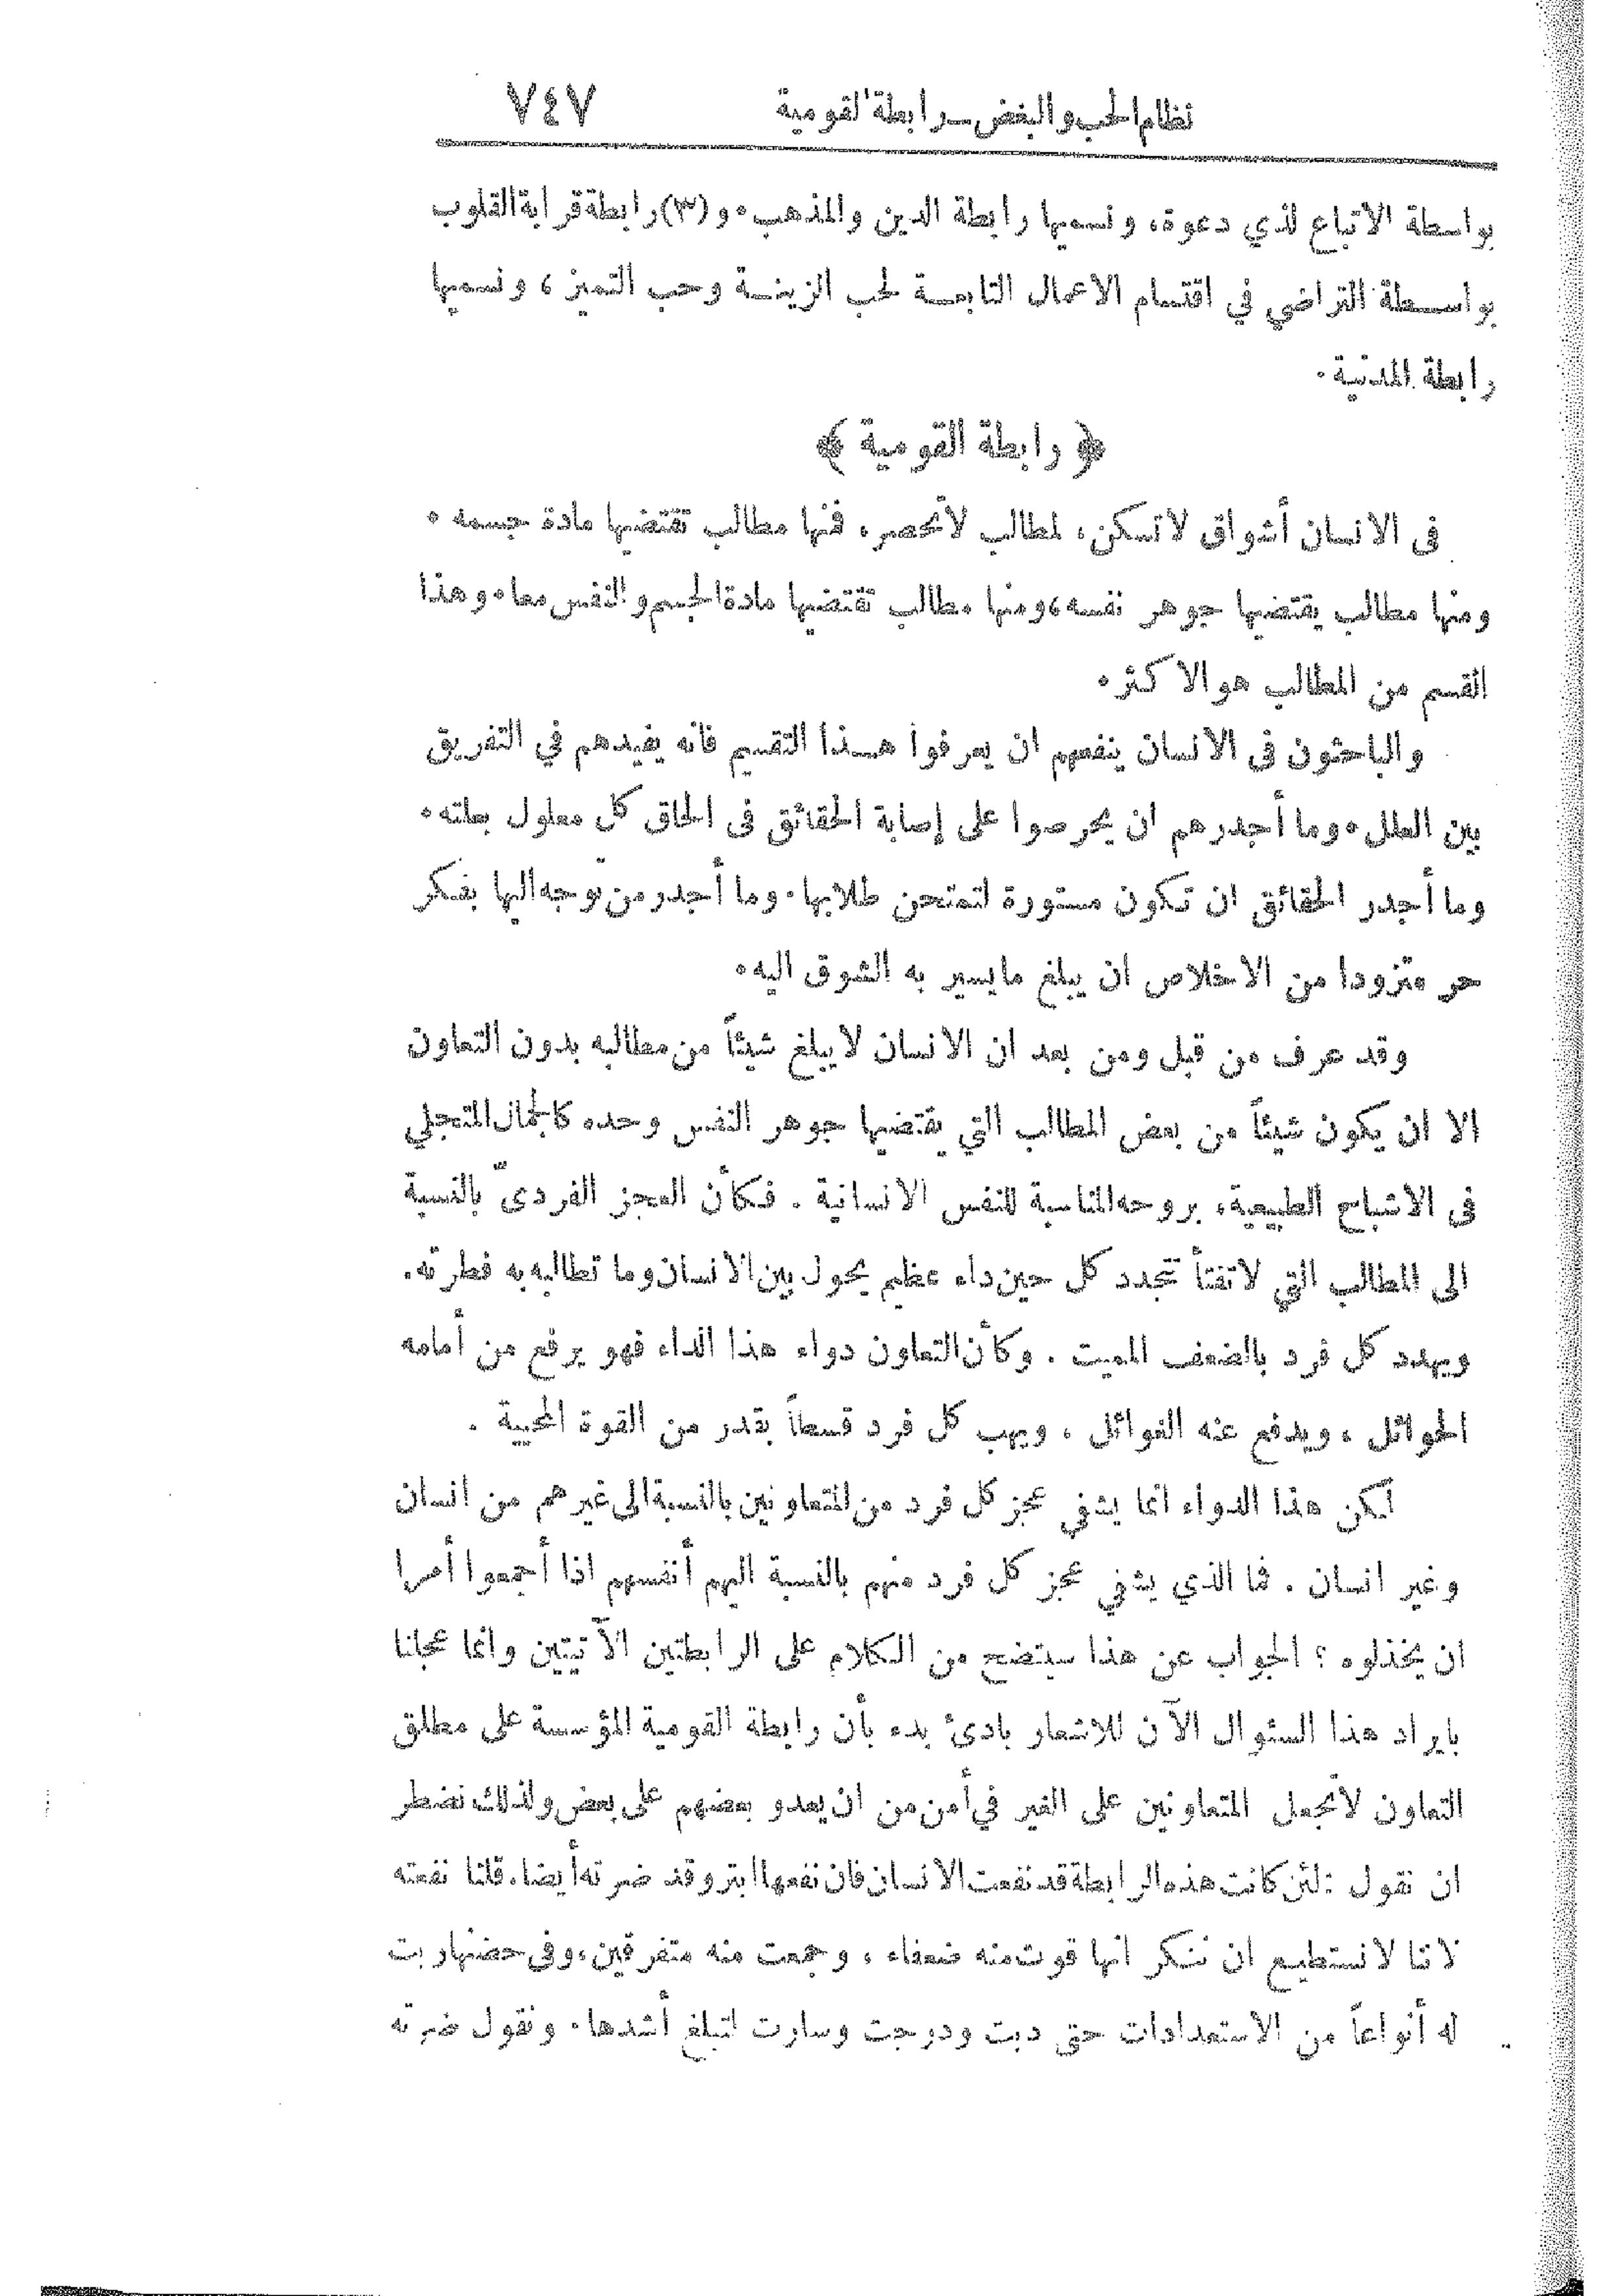 نظام الحب والبغض ــ رابطة القومية ٧٤٧
بواسطة الاتباع لذي دعوة، ونسميها رابطة الدين والمذهب. و(٣) رابطة قرابة القلوب
بواسطة التراضي في اقتسام الاعمال التابعة لحب الزينة وحب التميز، ونسميها
رابطة المدنية.
﴿ رابطة القومية ﴾
في الانسان أشواق لا تسكن، لمطالب لا تحصر، فمنها مطالب تقتضيها مادة جسمه.
ومنها مطالب يقتضيها جوهر نفسه، ومنها مطالب تقتضيها مادة الجسم والنفس معا. وهذا
القسم من المطالب هو الاكثر.
والباحثون في الانسان ينفعهم ان يعرفوا هذا التقسيم فانه يفيدهم في التفريق
بين العلل. وما أجدرهم ان يحرصوا على إصابة الحقائق في الحاق كل معلول بعلته.
وما أجدر الحقائق ان تكون مستورة لتمتحن طلابها. وما أجدر من توجه اليها بفكر
حر متزودا من الاخلاص ان يبلغ ما يسير به الشوق اليه.
وقد عرف من قبل ومن بعد ان الانسان لا يبلغ شيئاً من مطالبه بدون التعاون
الا ان يكون شيئاً من بعض المطالب التي يقتضيها جوهر النفس وحده كالجمال المتجلي
في الاشباح الطبيعية، بروحه المناسبة للنفس الانسانية. فكأن العجز الفرديّ بالنسبة
الى المطالب التي لا تفتأ تتجدد كل حين داء عظيم يحول بين الانسان وما تطالبه به فطرته.
ويهدد كل فرد بالضعف المميت. وكأن التعاون دواء هذا الداء فهو يرفع من أمامه
الحوائل، ويدفع عنه الغوائل، ويهب كل فرد قسطاً بقدر من القوة المحيية.
لكن هذا الدواء انما يشفي عجز كل فرد من المتعاونين بالنسبة الى غيرهم من انسان
وغير انسان. فما الذي يشفي عجز كل فرد منهم بالنسبة اليهم أنفسهم اذا أجمعوا أمرا
ان يخذلوه؟ الجواب عن هذا سيتضح من الكلام على الرابطتين الآتيتين وانما عجلنا
بايراد هذا السئوال الآن للاشعار بادئ بدء بأن رابطة القومية المؤسسة على مطلق
التعاون لا تجعل المتعاونين على الغير في أمن من ان يعدو بعضهم على بعض ولذلك نضطر
ان نقول: لئن كانت هذه الرابطة قد نفعت الانسان فان نفعها ابتر وقد ضرته أيضا. قلنا نفعته
لاننا لا نستطيع ان ننكر انها قوت منه ضعفاء، وجمعت منه متفرقين، وفي حضنها ربت
له أنواعاً من الاستعدادات حتى دبت ودرجت وسارت لتبلغ أشدها. ونقول ضرته